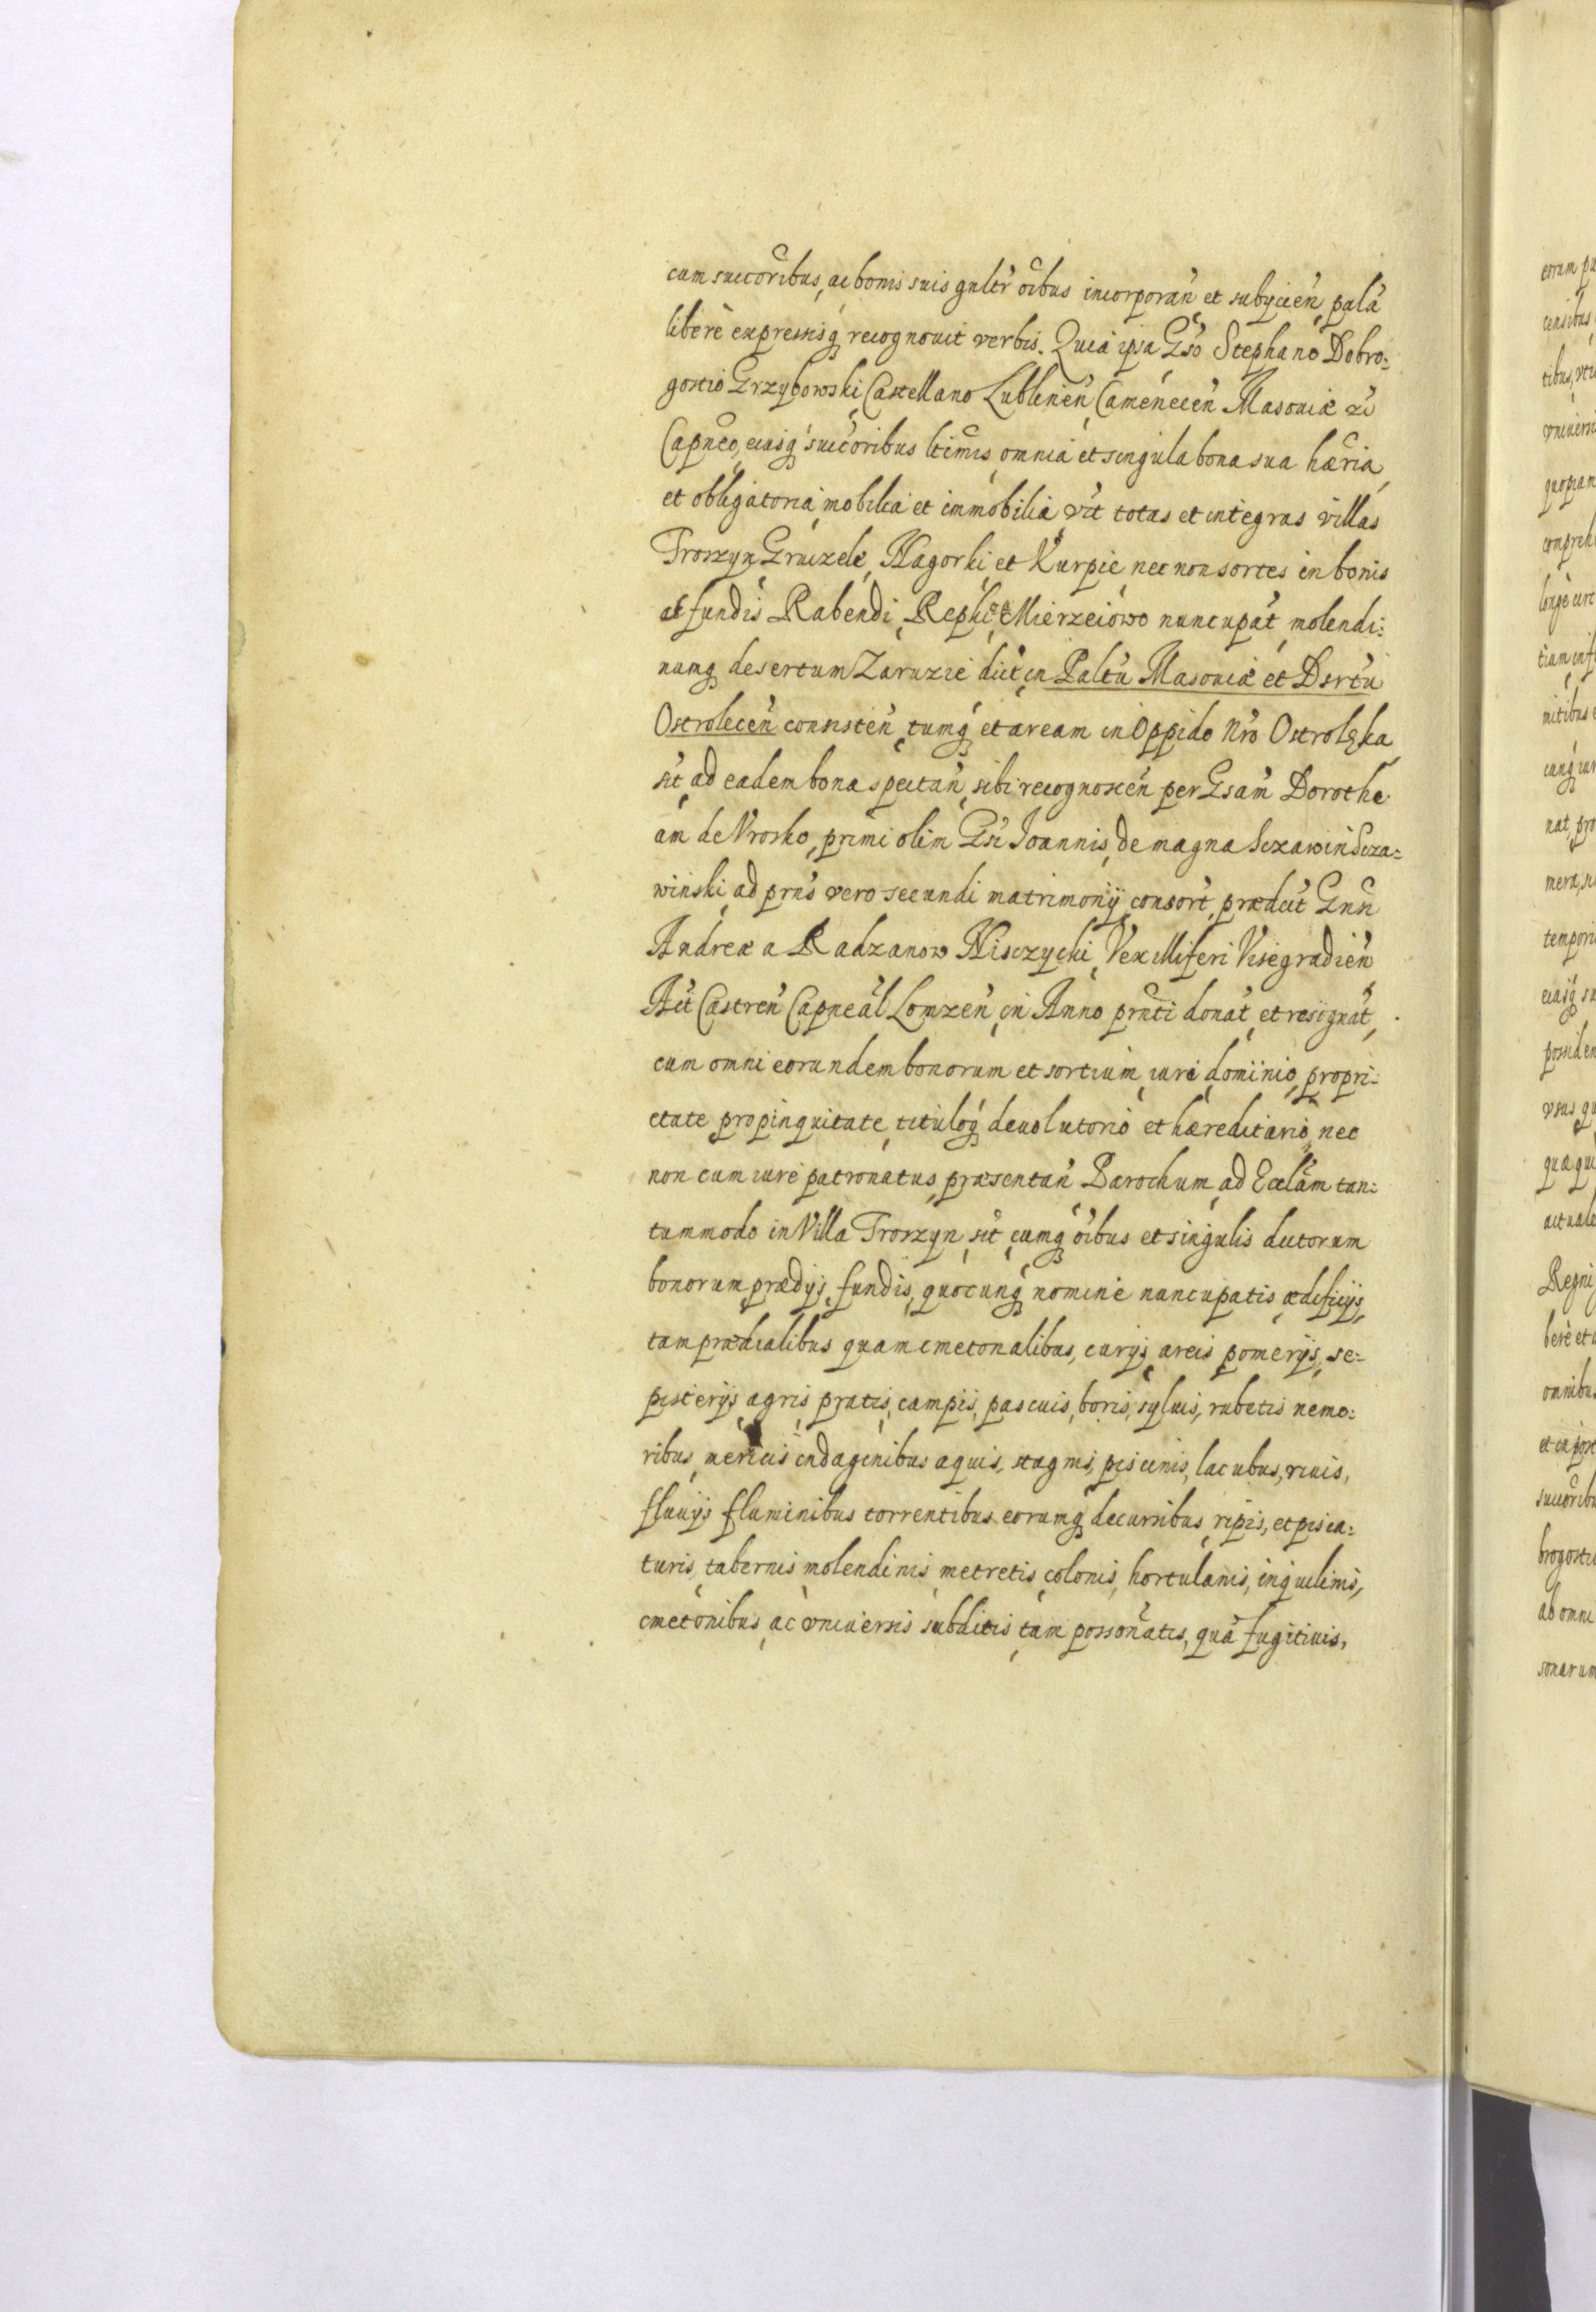 cum succoribus, ac bonis suis gnltr oibus incorporan et subycien, pala
libere expressisq recognouit verbis. Quia ipsa Gso Stephano Dobro-
gostio Grzybowski, Castellano Lublinen, Camenecen Masouiæ zc
Capneo, eiusq succoribus ltimis, omnia et singula bona sua hæria,
et obligatoria, mobilia et immobilia, vtt totas et integras villas
Troszyn, Gruczele, Nagorki, et Kurpie, nec non sortes in bonis
ac fundis Rabendi, Repki, et Mierzeiowo nuncupat, molendi-
numq desertum Zaruzie dict, in Paltu Masouiæ et Dsrtu
Ostrolecen consisten, tumq et aream in Oppido Nro Ostrolęka,
sit, ad eadem bona spectan, sibi recognoscen per Gsam Dorothe-
am de Vrosko, primi olim Gsi Ioannis, de magna Sczawin Scza-
winski, ad prns vero secundi matrimonij, consort, prædict Gnsi
Andreæ a Radzanow Nisczycki, Vexilliferi Visegradien
Act Castren Capneal Lomzen, in Anno prnti donat, et resignat,
cum omni eorundem bonorum et sortium, iure, dominio, propri-
etate, propinquitate, tituloq deuolutorio et hæreditario, nec
non cum iure patronatus, præsentan Parochum, ad Ecclam tan-
tummodo in Villa Troszyn, sit, cumq oibus et singulis dictorum
bonorum prædijs, fundis, quocunq nomine nuncupatis, ædificijs,
tam prædialibus quam cmetonalibus, curijs, areis, pomerijs, se-
pisterijs, agris, pratis, campis, pascuis, boris, syluis, rubetis nemo-
ribus, mericis indaginibus aquis, stagnis, piscinis, lacubus, riuis,
fluuijs fluminibus torrentibus eorumq decursibus, ripis, et pisca-
turis, tabernis molendinis, metretis, colonis, hortulanis, inquilinis,
cmetonibus, ac vniuersis subditis, tam possonatis, qua fugitiuis,